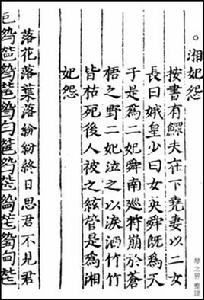 ○湘妃怨
按書有鰥夫在下堯妻以二女
長曰娥皇少曰女英舜既為天
子是為二妃舜南巡狩崩於蒼
梧之野二妃泣之以淚洒竹竹
皆枯死後人被之絃管是為湘
妃怨
落花落葉落紛紛終日思君不見君